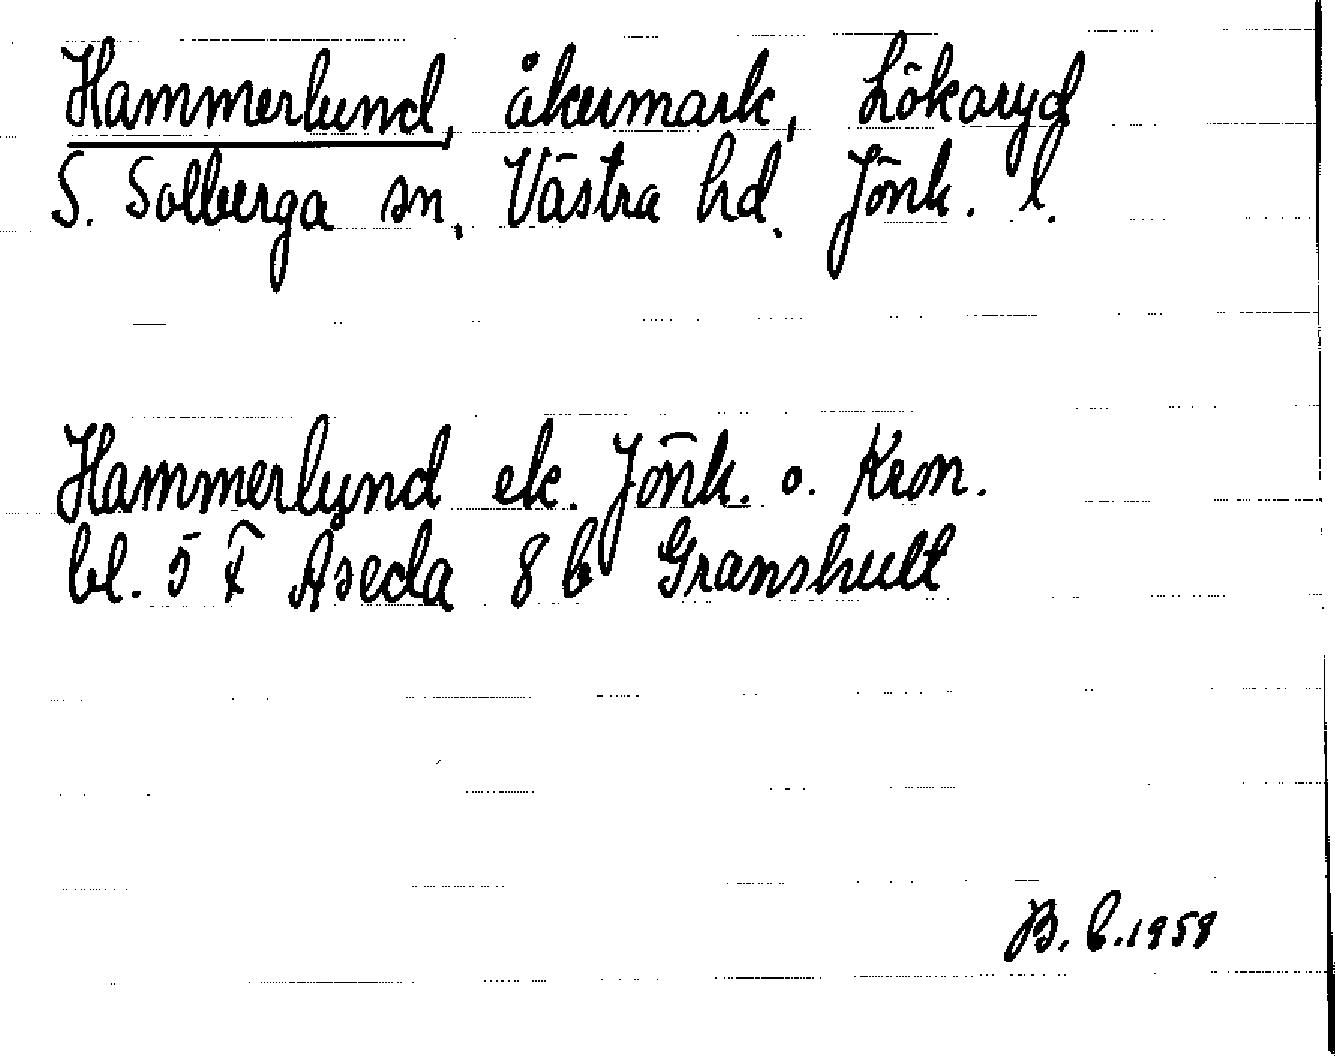 Hammerlund, åkermark, Lökaryd
S. Solberga sn. Västra hd. Jönk. l.
Hammerlund ek. Jönk. o. Kron.
bl. 5 F Åseda 8 b Granshult
B. L. 1958